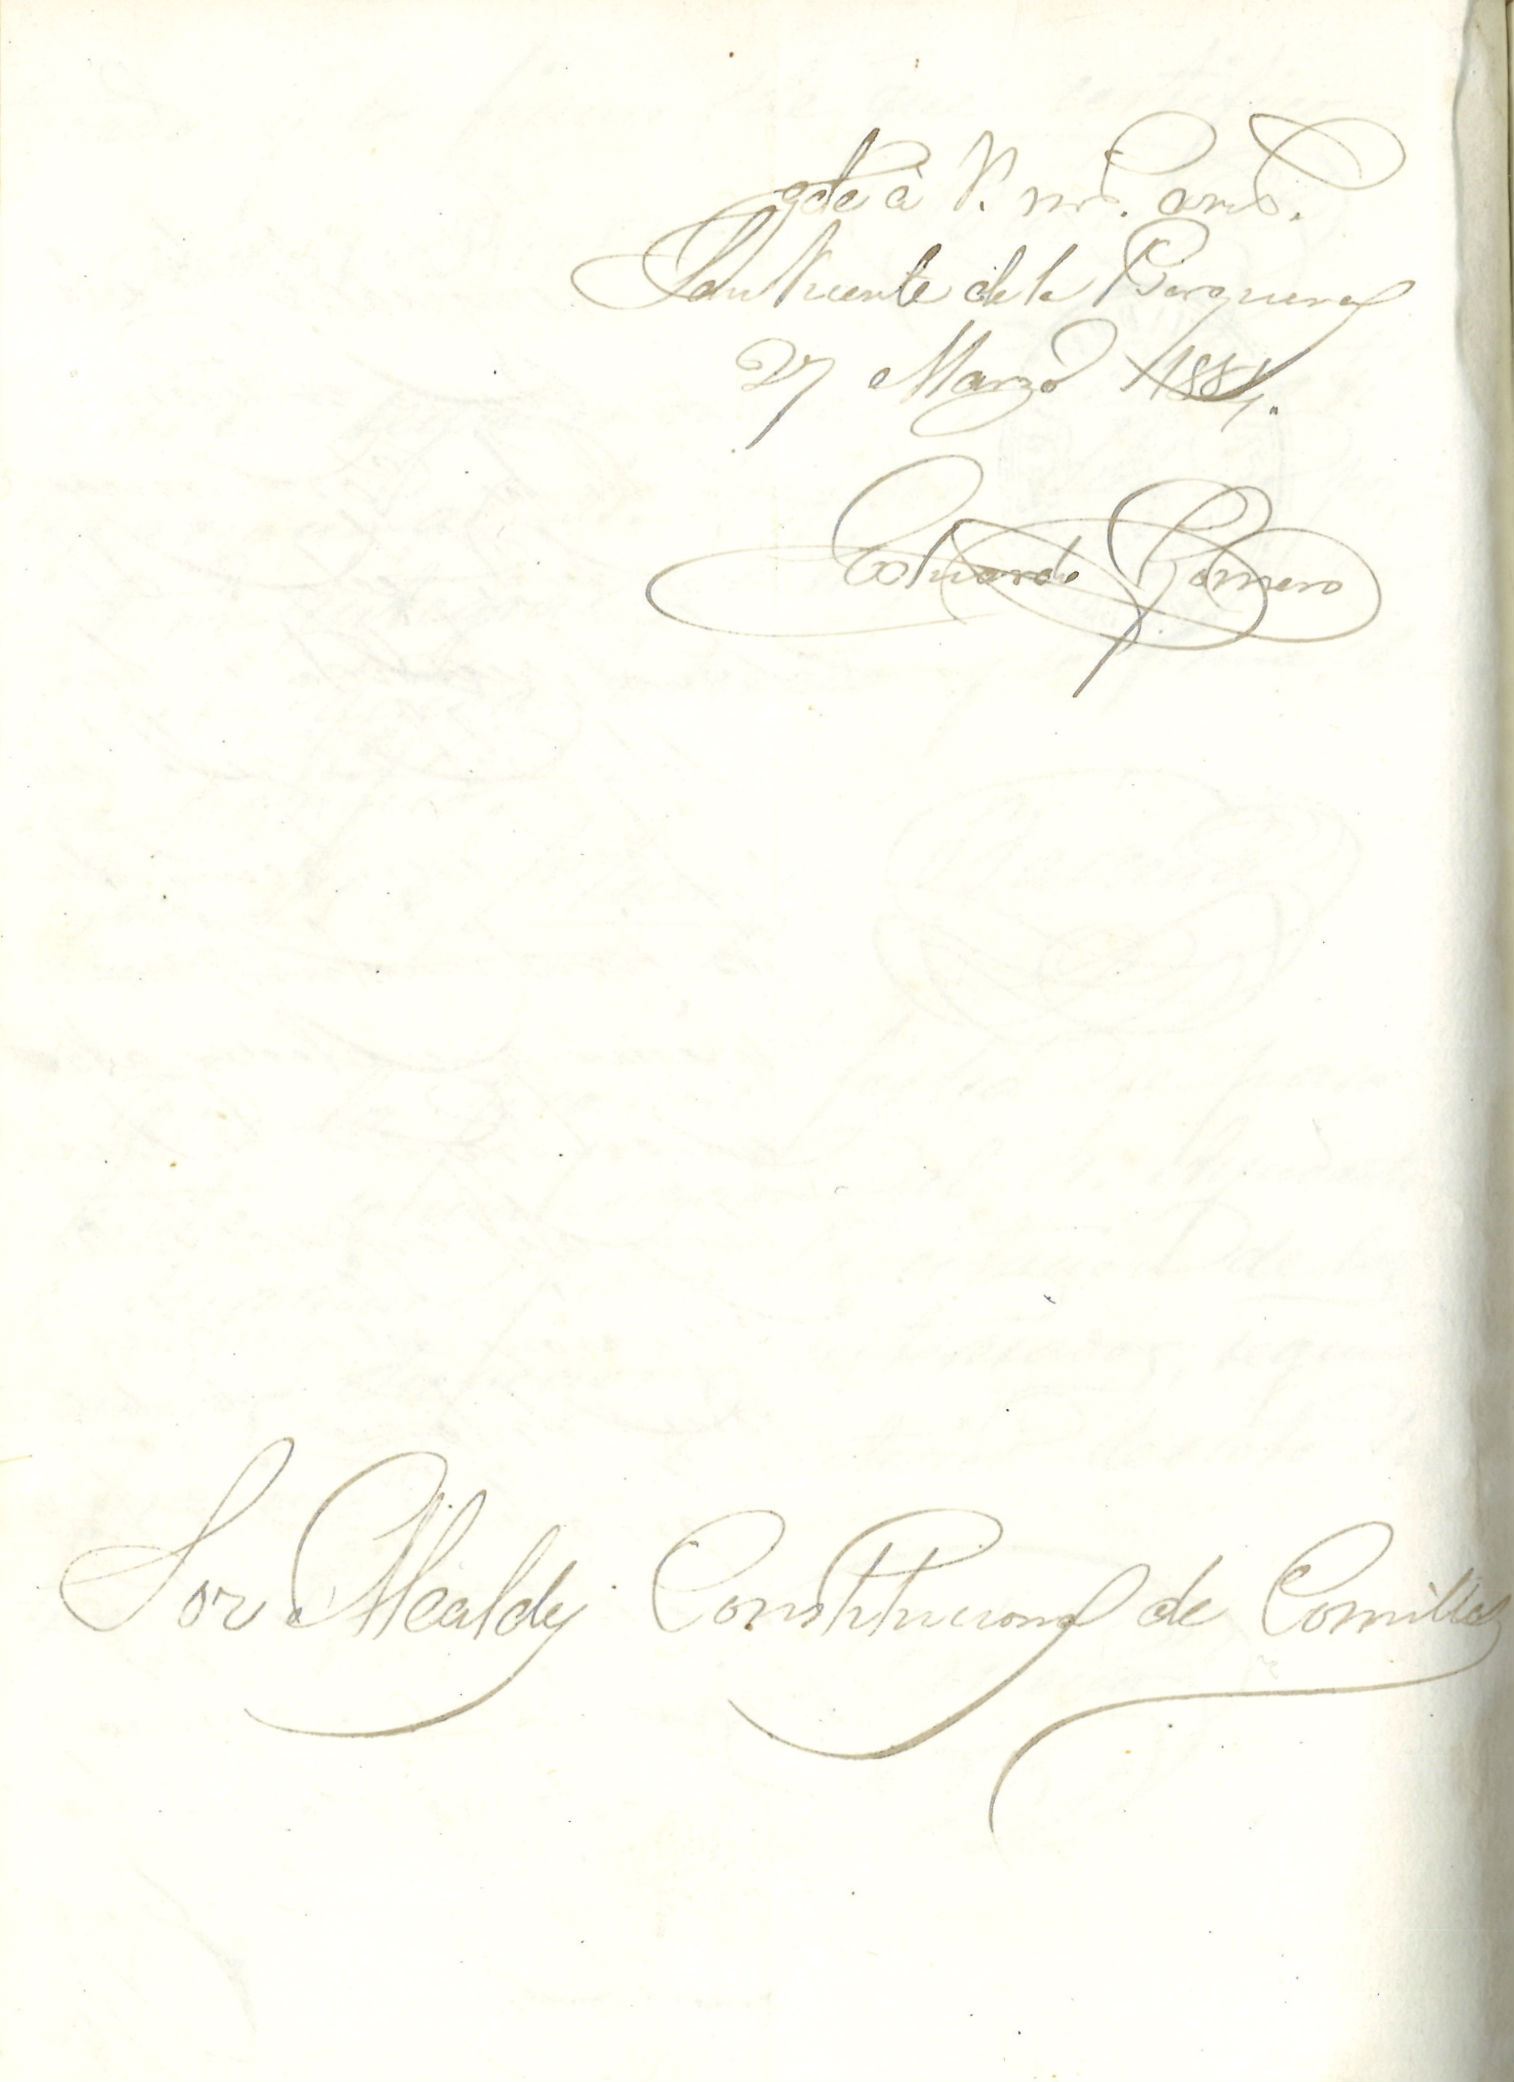 gde à V. ms. ans.
San Vicente de la Barquera
27 Marzo 1884.
Eduardo Romero
Sor Alcalde Constitucional de Comillas